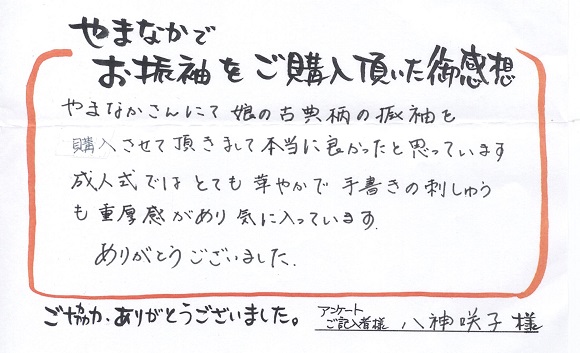 やまなかで
お振袖をご購入頂いた御感想
やまなかさんにて娘の古典柄の振袖を
購入させて頂きまして本当に良かったと思っています
成人式ではとても華やかで手書きの刺しゅう
も重厚感があり気に入っています.
ありがとうございました.
ご協力、ありがとうございました。
アンケート
ご記入者様 八神咲子様